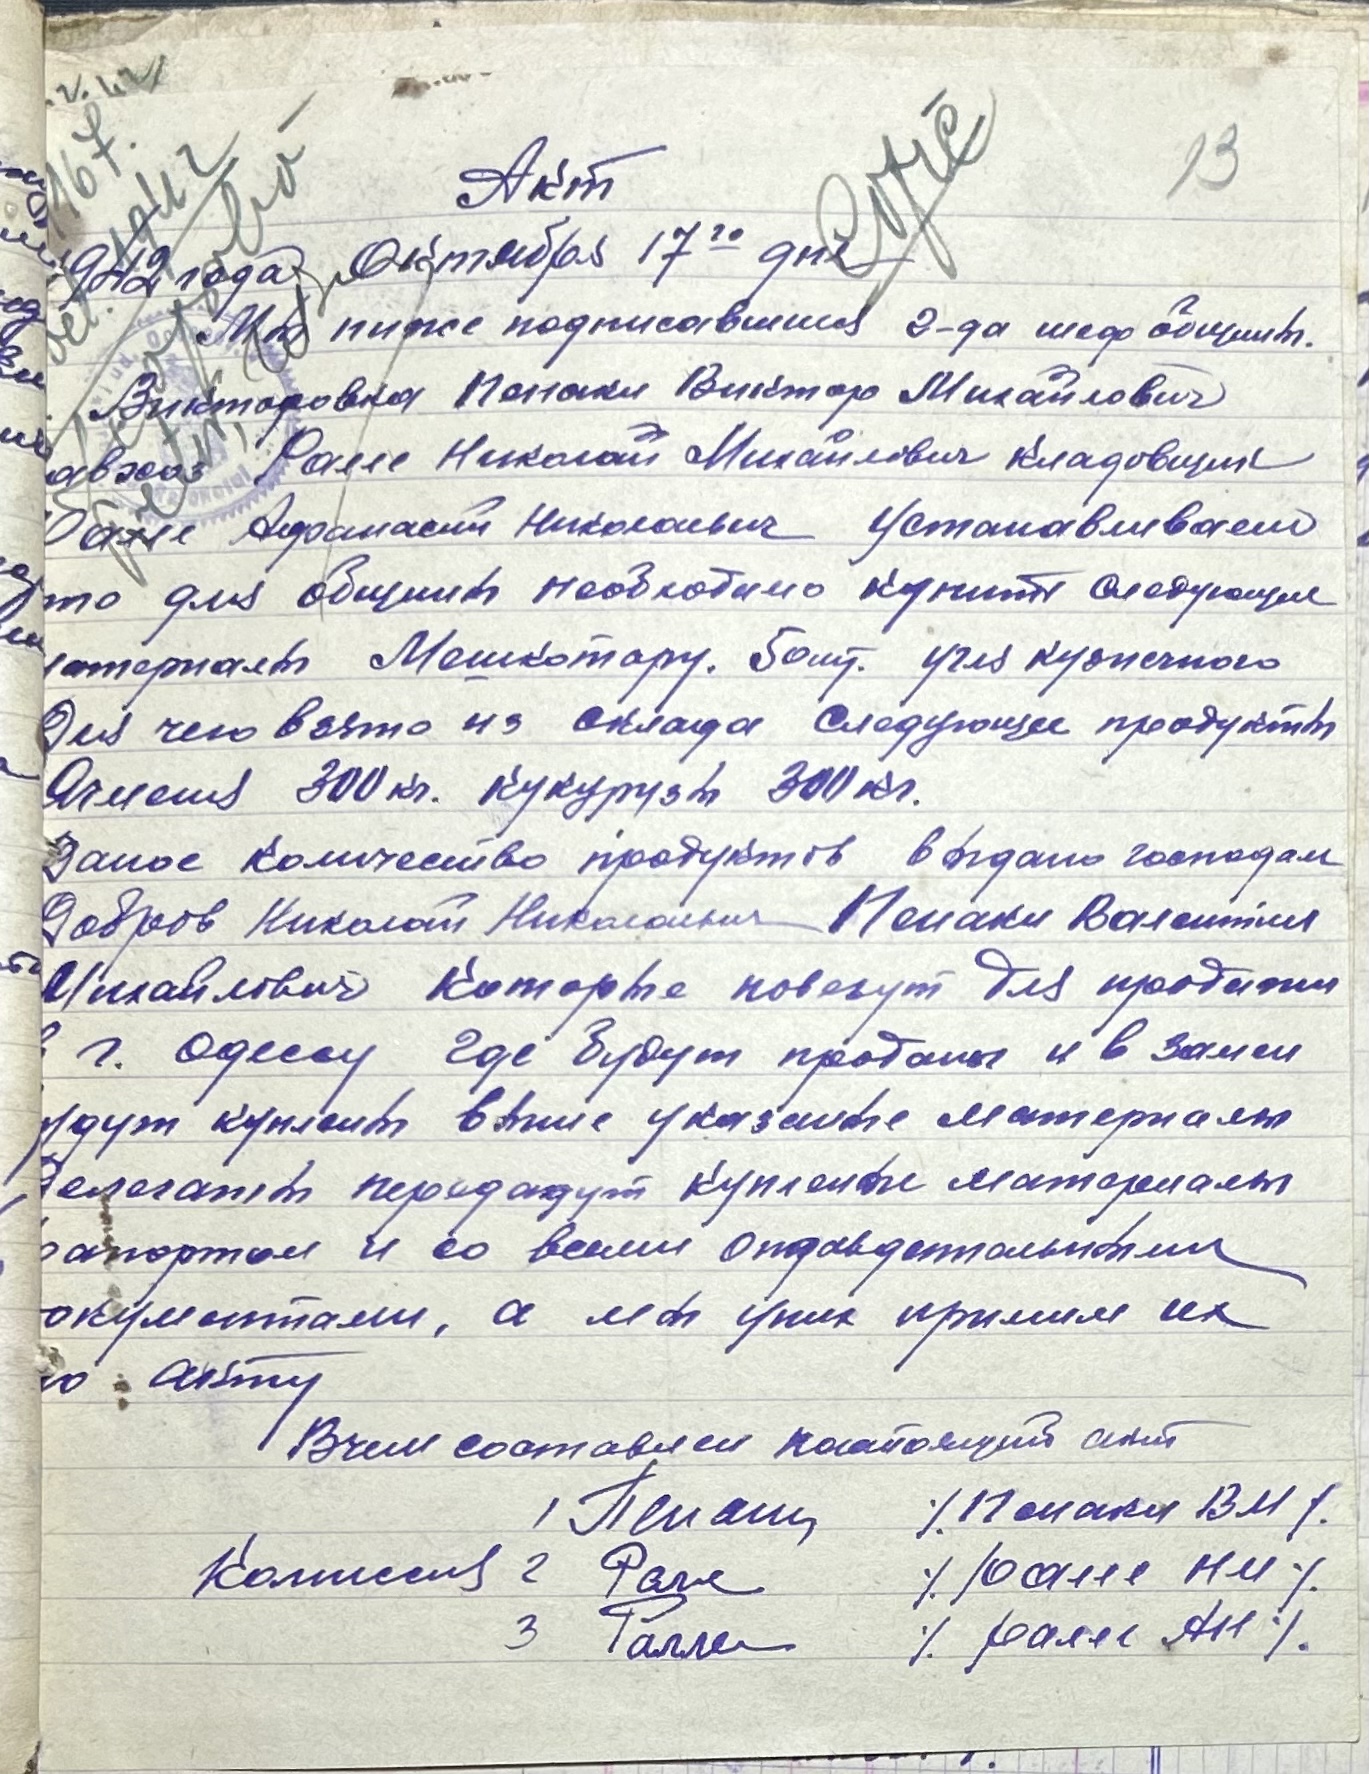 167.
13
Copie
Акт
1942 года Октября 17го дня
Мы ниже подписавшиеся 2-да шеф общины.
Викторовка Пенаки Виктор Михайлович
авхоз Рале Николай Михайлович Кладовщик
Рале Афанасий Николаевич Устанавливаем
то для общины необходимо купить следующие
атериалы Мешкотару. 50 шт. угля кузнечного
Для чего взято из склада следующее продукты
Ячменя 300 кг. кукурузы 300 кг.
Даное количество продуктов выдано господам
Добров Николай Николаевич Пенаки Валентин
Михайлович Которые повезут для продажи
в г. Одессу где будут проданы и в замен
удут куплены выше указаные материалы
Делегаты передадут купленые материалы
рапортом и со всеми
окументами, а мы у них примим их
по акту
Вчем составлен настоящий акт
1 Пенаки ·/. Пенаки ВМ ·/.
Комиссия 2 Рале ·/. Рале НМ ·/.
3 Ралле ·/. Рале АН ·/.